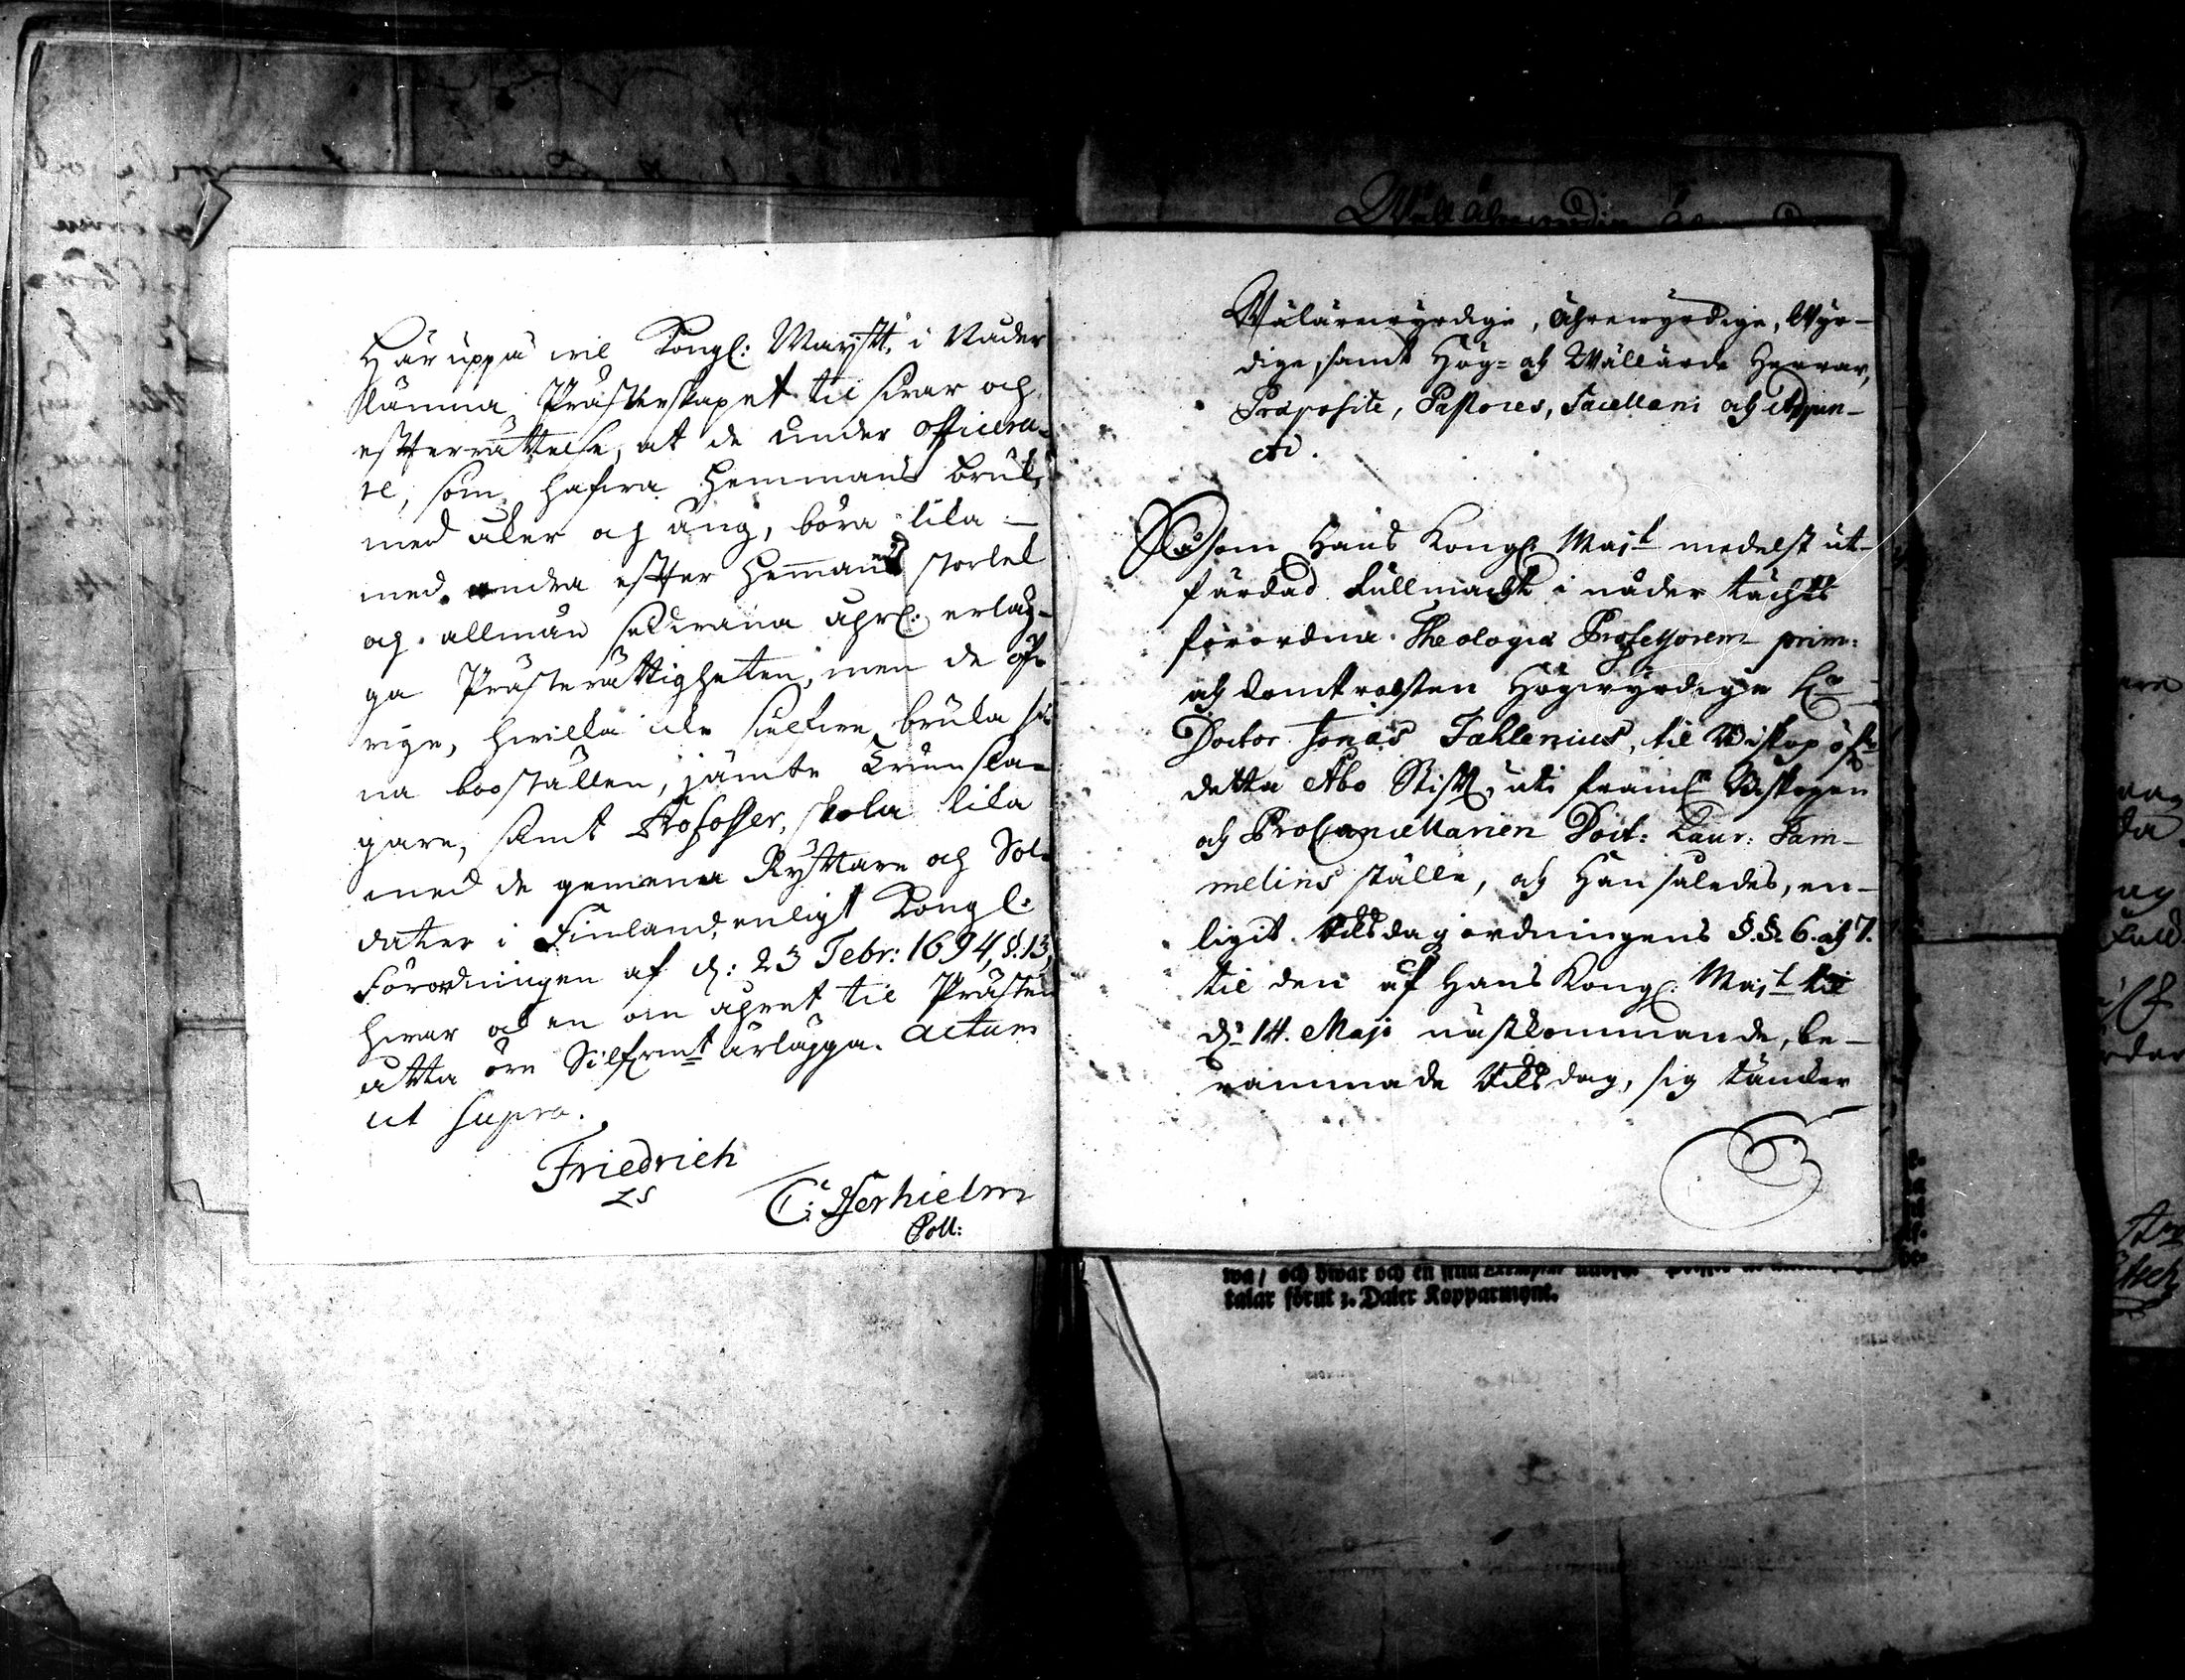 Häruppå wil Kongl: Maystt, i Nåder
lämna Prästerskapet til swar och
effterrättelse, at de under officera-
re, som hafwa Hemmans bruk,
med åker och äng, böra lika
med andra effter Hemmanets storlek
och allmän sedwana åhrl: erläg-
ga Prästerättigheten, men de öf-
rige, hwilka icke sielfwe bruka si-
na boställen, jämte Trumsla-
gare, samt Profosser, skola lika
med de gemena Ryttare och Sol-
dater i Finland, enligt Kongl:
Förordningen af d: 23 Febr: 1694, §. 13,
hwar och en om åhret til Prästen
åtta öre Silfwrmt ärlägga. Actum
ut supra.
Friedrich
LS
C: Jserhielm
Coll:
Wälärewyrdige, Ährewyrdige, Wyr-
dige, samt Hög- och Wällärde Herrar,
Præpositi, Pastores, Sacellani och Adjun-
cti.
Såsom Hans Kongl: Majt medelst ut-
färdad Fullmackt i nåder täckts
förordna Theologiæ Professorem prim:
och Domprobsten Högwyrdige Hr
Doctor Jonas Fahlenius, til Biskop öfr
detta Åbo Stifft, uti framl: Biskopen
och ProCancellarien Doct: Laur: Tam-
melins ställe, och Han således, en-
ligit Riksdagsordningens §.§. 6. och 7.
til den af Hans Kongl: Majt til
d: 14. Maji nästkommande, be-
rammade Riksdag, sig länder
wa / och hwar och en
talar förut 3. Daler Kopparmynt.